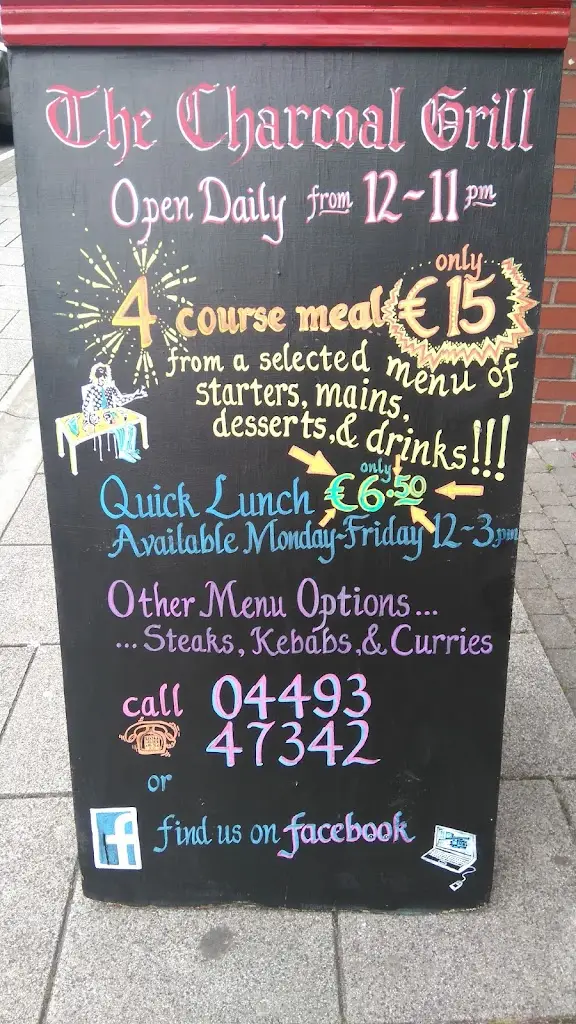 The Charcoal Grill
Open Daily from 12-11 pm
4 course meal only €15
from a selected menu of
starters, mains,
desserts, & drinks!!!
Quick Lunch only €6.50
Available Monday-Friday 12-3pm
Other Menu Options...
... Steaks, Kebabs, & Curries
call 04493
47342
or
f find us on facebook